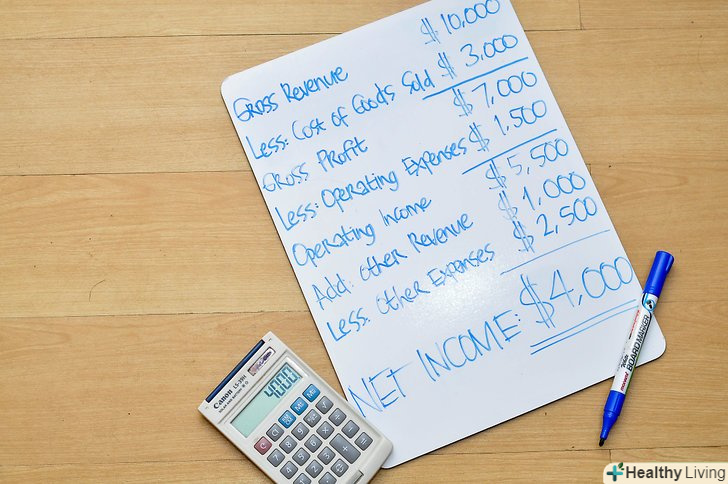 Gross Revenue $ 10,000
Less: Cost of Goods Sold $ 3,000
Gross Profit $ 7,000
Less: Operating Expenses $ 1,500
Operating Income $ 5,500
Add: Other Revenue $ 1,000
Less: Other Expenses $ 2,500
NET INCOME: $4,000
Canon LS-39H
4000.
BOARD MARKER
Healthy Living